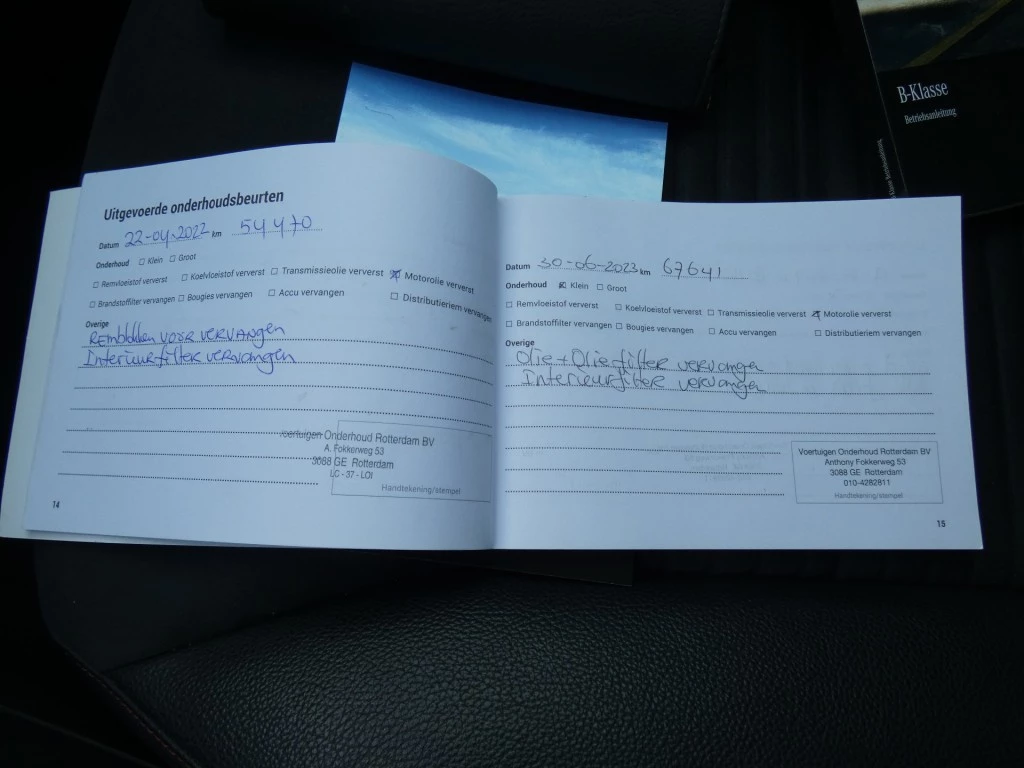 B-Klasse
Betriebsanleitung
Uitgevoerde onderhoudsbeurten
Datum 22-04-2022 km 54470
Onderhoud ☐ Klein ☐ Groot
☐ Remvloeistof ververst ☐ Koelvloeistof ververst ☐ Transmissieolie ververst ☒ Motorolie ververst
☐ Brandstoffilter vervangen ☐ Bougies vervangen ☐ Accu vervangen ☐ Distributieriem vervangen
Overige
Remblokken voor vervangen
Interieurfilter vervangen
Voertuigen Onderhoud Rotterdam BV
A. Fokkerweg 53
3088 GE Rotterdam
LC - 37 - LOI
Handtekening/stempel
14
Datum 30-06-2023 km 67641
Onderhoud ☒ Klein ☐ Groot
☐ Remvloeistof ververst ☐ Koelvloeistof ververst ☐ Transmissieolie ververst ☒ Motorolie ververst
☐ Brandstoffilter vervangen ☐ Bougies vervangen ☐ Accu vervangen ☐ Distributieriem vervangen
Overige
Olie + Olie filter vervangen
Interieurfilter vervangen
Voertuigen Onderhoud Rotterdam BV
Anthony Fokkerweg 53
3088 GE Rotterdam
010-4282811
Handtekening/stempel
15